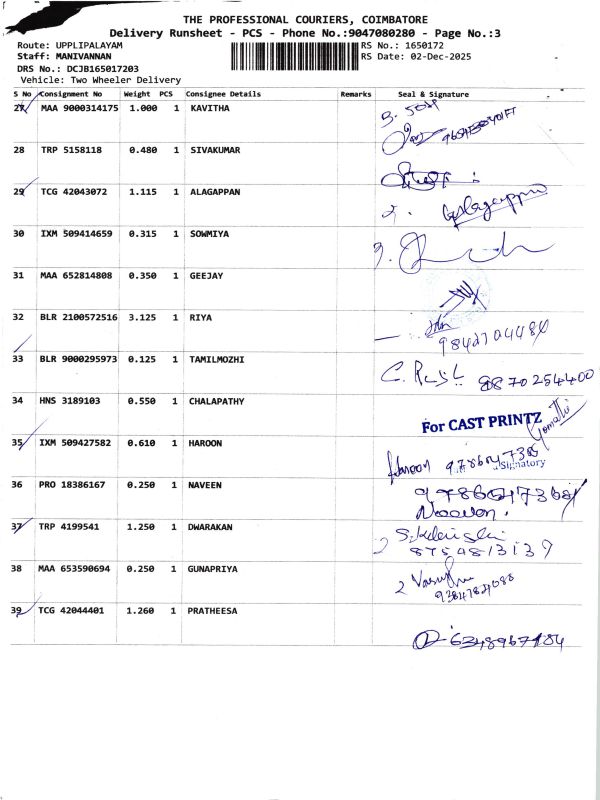 THE PROFESSIONAL COURIERS, COIMBATORE
Delivery Runsheet - PCS - Phone No.:9047080280 - Page No.:3
Route: UPPLIPALAYAM RS No.: 1650172
Staff: MANIVANNAN RS Date: 02-Dec-2025
DRS No.: DCJB165017203
Vehicle: Two Wheeler Delivery
S No Consignment No Weight PCS Consignee Details Remarks Seal & Signature
27 MAA 9000314175 1.000 1 KAVITHA
28 TRP 5158118 0.480 1 SIVAKUMAR
29 TCG 42043072 1.115 1 ALAGAPPAN
2. Alagappan
30 IXM 509414659 0.315 1 SOWMIYA
31 MAA 652814808 0.350 1 GEEJAY
32 BLR 2100572516 3.125 1 RIYA
9842704480
33 BLR 9000295973 0.125 1 TAMILMOZHI
8870254400
34 HNS 3189103 0.550 1 CHALAPATHY
For CAST PRINTZ Gomathi
35 IXM 509427582 0.610 1 HAROON
Haroon
Signatory
36 PRO 18386167 0.250 1 NAVEEN
Naveen.
37 TRP 4199541 1.250 1 DWARAKAN
8754813139
38 MAA 653590694 0.250 1 GUNAPRIYA
9384784088
39 TCG 42044401 1.260 1 PRATHEESA